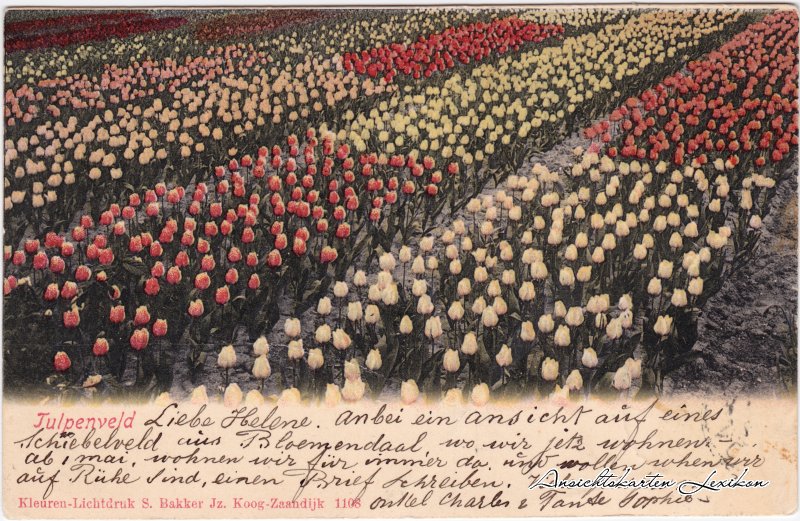 Tulpenveld Liebe Helene. Anbei ein Ansicht auf eines
Schiebelveld aus Bloemendaal wo wir jetz wohnen
ab 1 mai, wohnen wir für immer da, und wollen when wir
auf Rühe sind, einen Brief Schreiben.
Kleuren-Lichtdruk S. Bakker Jz. Koog-Zaandijk 1108 onkel Charles & Tante Sophie
Ansichtskarten Lexikon